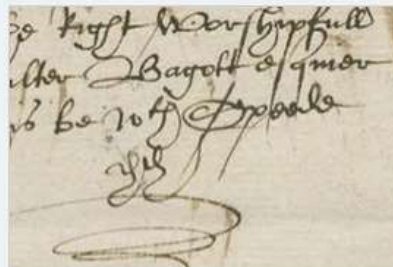 he Right Worshipfull
alter Bagott esquier
is be with Speede